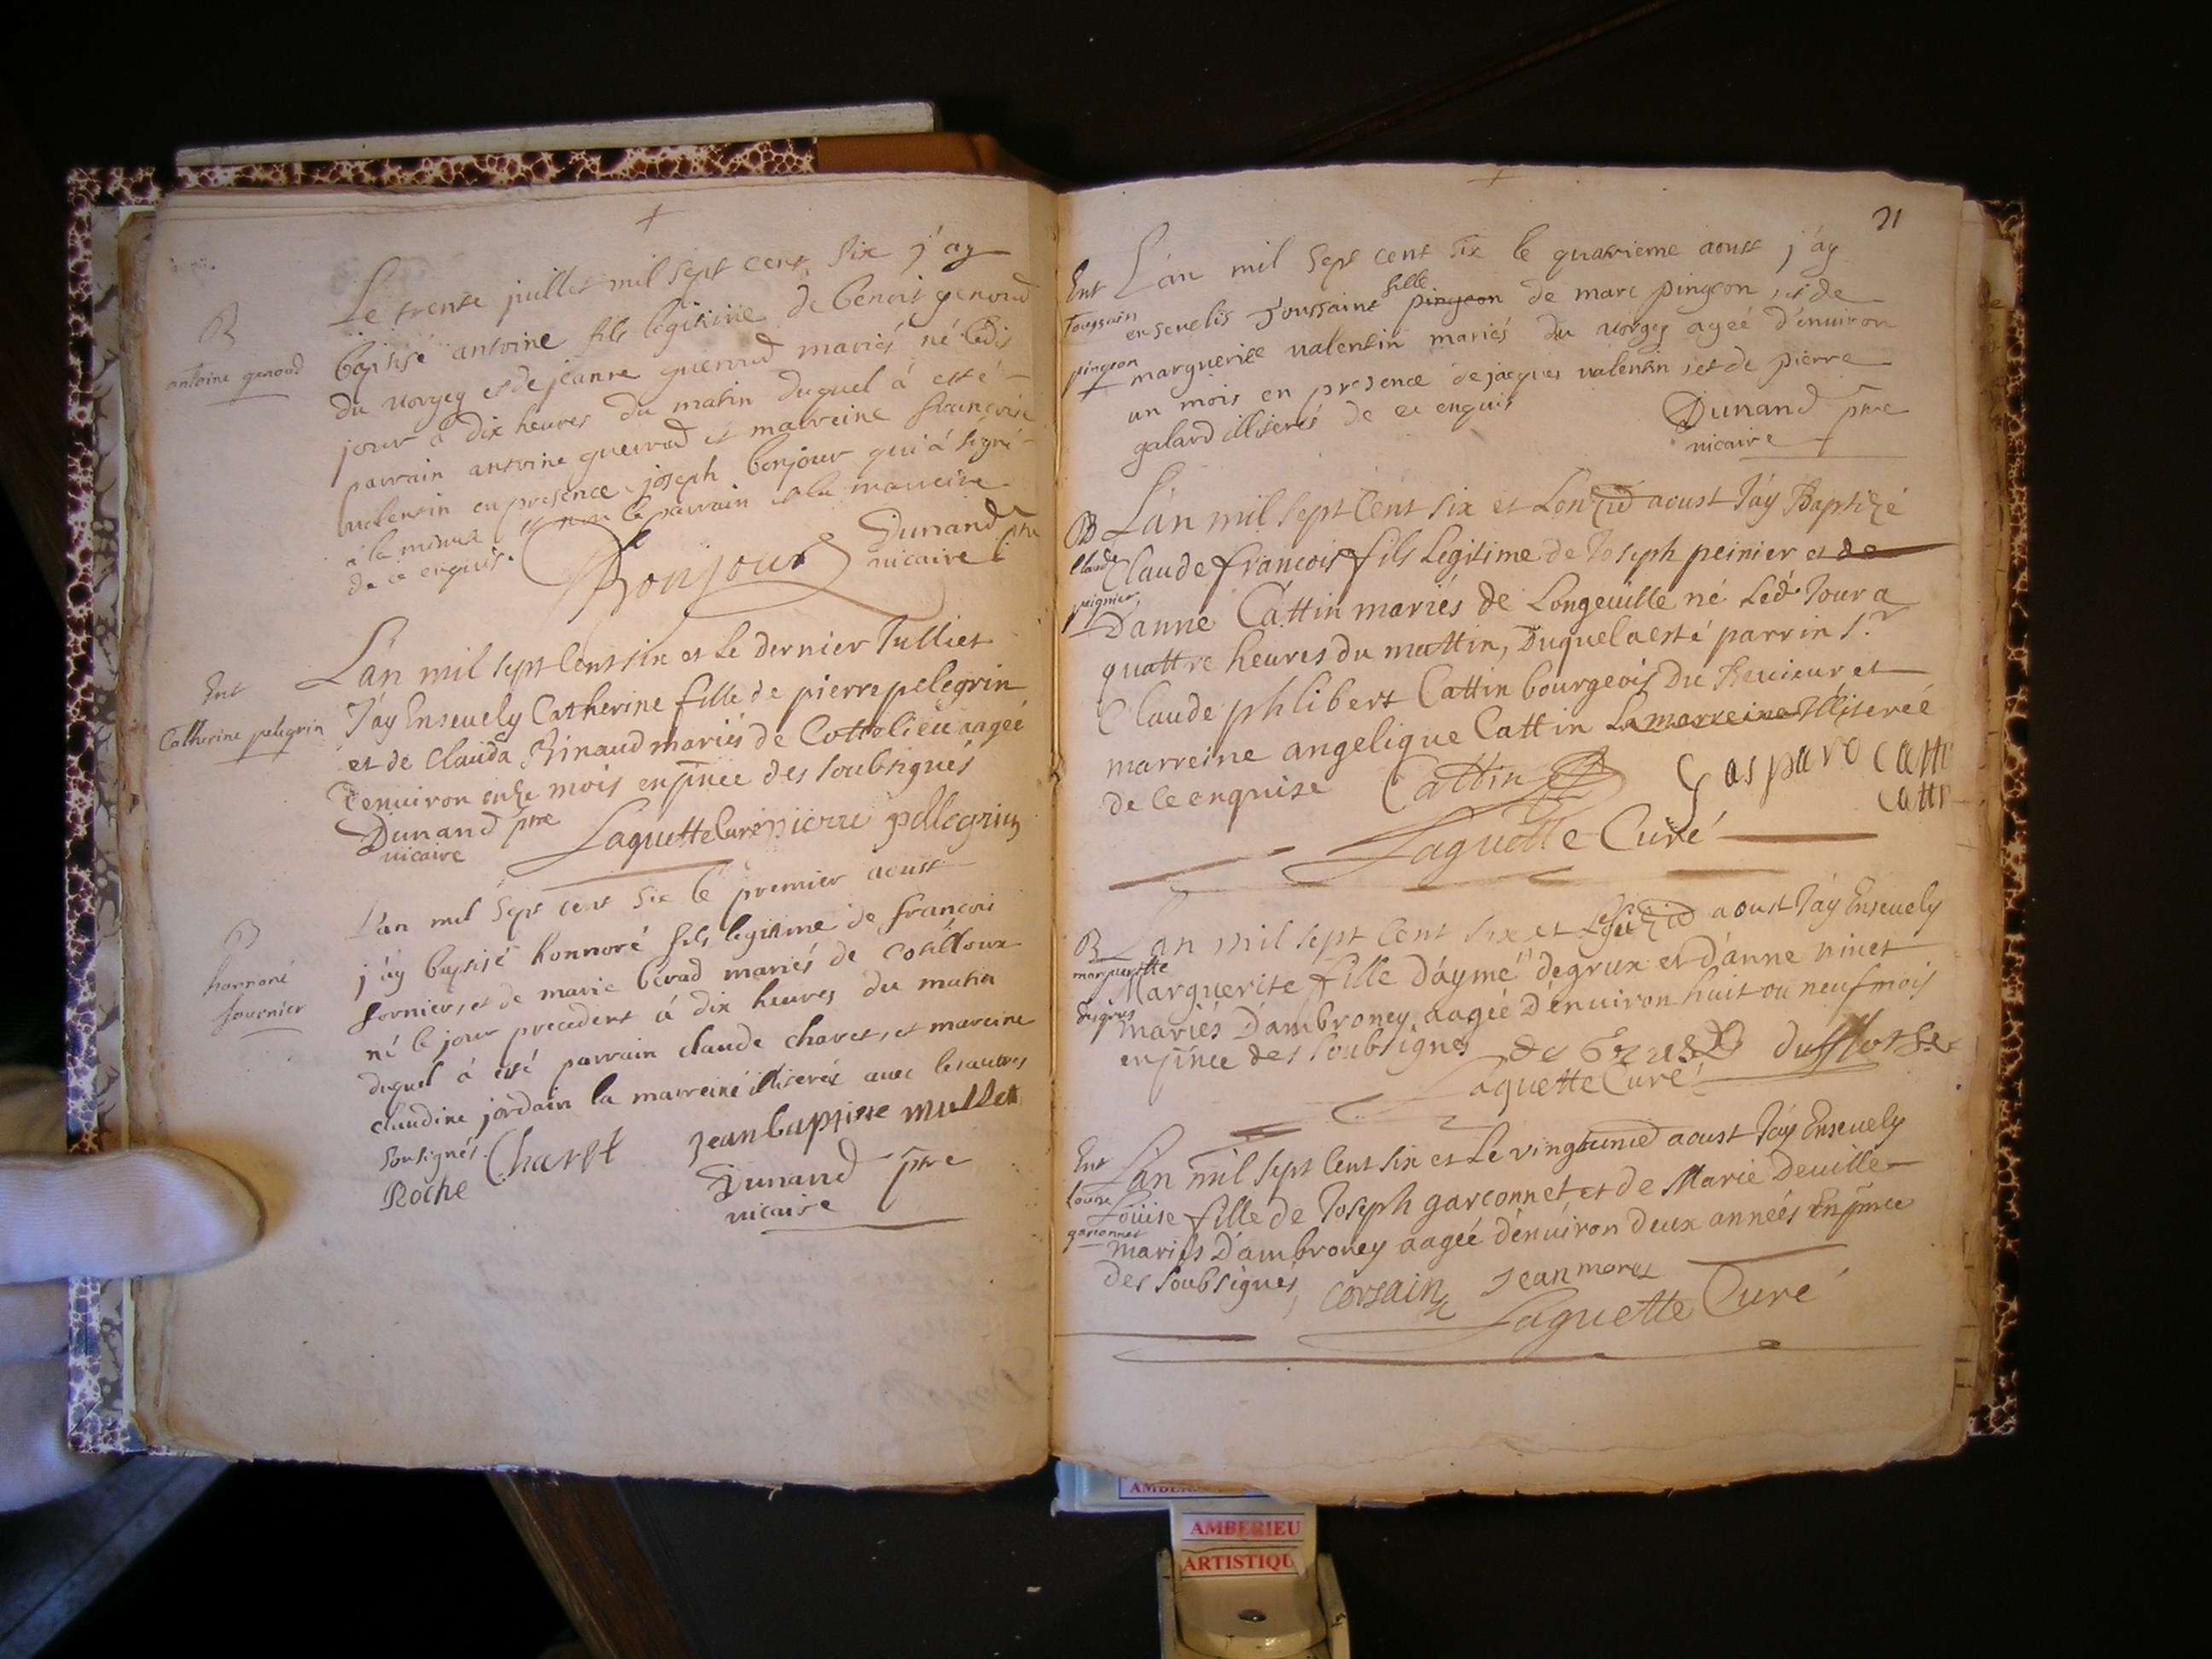 Le trente juillet mil sept cent six j'ay
B
antoine genoud
baptisé antoine fils legitime de benoit genoud
du vorgey et de jeanne guerrad mariés né ledit
jour à dix heures du matin duquel à esté
parrain antoine guerrad et marreine françoise
valentin en presence joseph bonjour qui à signé
à la minute et non le parrain et la marreine
de ce enquis.
Bonjour
Dunand ptre
vicaire
Ent
Catherine pelegrin
L'an mil sept Cent six et Le dernier Julliet
J'ay Enseuely Catherine fille de pierre pelegrin
et de Clauda Rinaud mariés de Cottelieu aagéé
d'enuiron onze mois en pñce des soubsignés
Dunand ptre
vicaire
Laguette Curé pierre pellegrin
B
honnoré
fournier
L'an mil sept cent six le premier aoust
j'ay baptisé honnoré fils legitime de françois
fornier, et de marie berad mariés de Coutelloux
né le jour precedent à dix heures du matin
duquel à esté parrain claude charet, et mareine
claudine jordain la marreine illiterée avec les autres
sousignés. Charet
jean baptiste mullet
Roche
Dunand ptre
vicaire
21
Ent
Toussain
pingeon
L'an mil sept cent six le quatrieme aoust j'ay
enseuelis Toussaint fille pingeon de marc pingeon, et de
marguerite valentin mariés du vorgey ageé d'enuiron
un mois en presence de jacques valentin, et de pierre
galard illiterés de ce enquis
Dunand ptre
vicaire
B
Claude
peignier
L'an mil sept Cent six et Lonzie aoust J'ay Baptizé
Claude francois fils Legitime de Joseph peinier et de
D'anne Cattin mariés de Longeuille né Led. Jour a
quattre heures du mattin, Duquel a esté parrin s.r
Claude phlibert Cattin bourgeois Du Reuieur et
marreine angelique Cattin La marreine Illiterée
de ce enquise Cattin Gaspard Cattin
Cattin
Laguette Curé
B
marguerite
degrus
L'an mil sept Cent six et Le seizie aoust J'ay Enseuely
Marguerite fille d'aymé degrux et d'anne niuet
mariés D'ambroney aagéé D'enuiron huit ou neuf mois
en pñce des soubsignés degrus dufflorse
Laguette Curé
Ent
Louise
garconnet
L'an mil sept Cent six et Le vingtunie aoust J'ay Enseuely
Louise fille de Joseph garconnet et de Marie Deuille
mariés D'ambroney aagéé d'enuiron deux années En pñce
des soubsignés, corsain Jean morel
Laguette Curé
AMBERIEU
ARTISTIQU